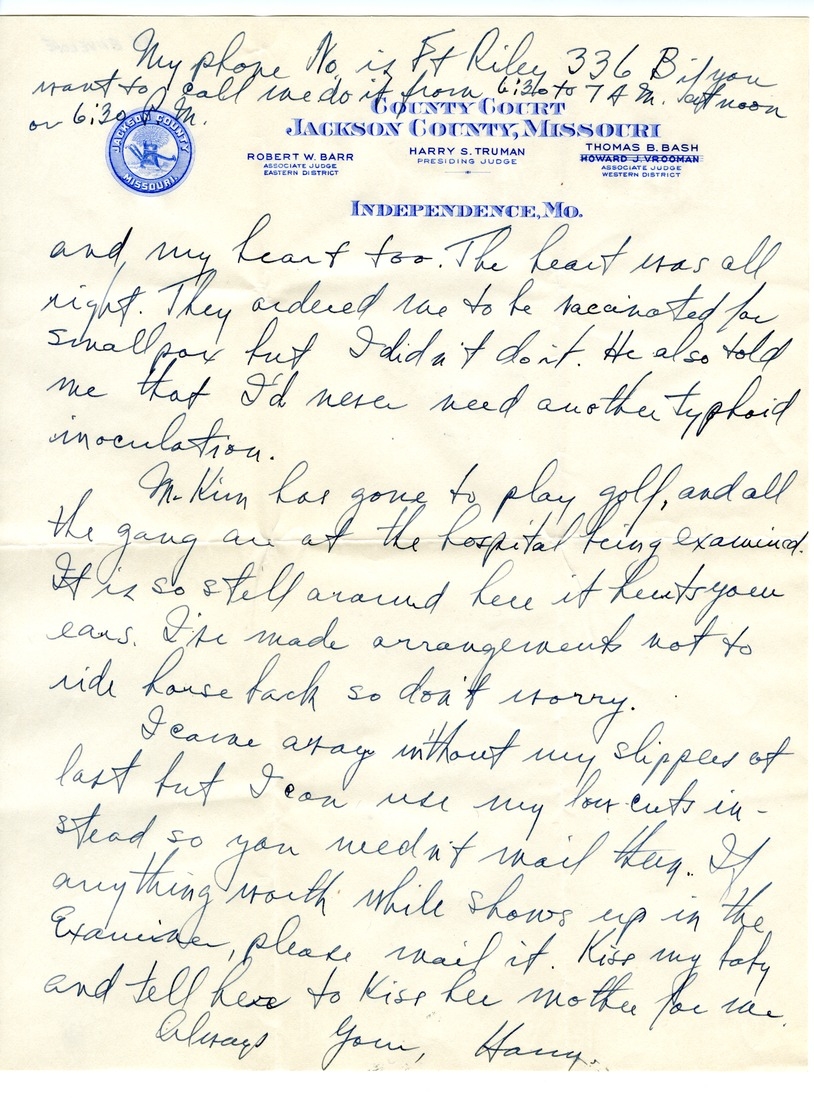 My phone No. is Ft Riley 336 B if you
want to call me do it from 6:30 to 7 A.M. at noon
or 6:30 P.M.
COUNTY COURT
JACKSON COUNTY, MISSOURI
JACKSON COUNTY
MISSOURI.
ROBERT W. BARR
ASSOCIATE JUDGE
EASTERN DISTRICT
HARRY S. TRUMAN
PRESIDING JUDGE
THOMAS B. BASH
HOWARD J. VROOMAN
ASSOCIATE JUDGE
WESTERN DISTRICT
INDEPENDENCE, MO.
and my heart too. The heart was all
right. They ordered me to be vaccinated for
smallpox but I didn't do it. He also told
me that I'd never need another typhoid
inoculation.
McKim has gone to play golf, and all
the gang are at the hospital being examined.
It is so still around here it hurts your
ears. I've made arrangements not to
ride horse back so don't worry.
I came away without my slippers at
last but I can use my low cuts in-
stead so you needn't mail them. If
anything worth while shows up in the
Examiner, please mail it. Kiss my baby
and tell her to kiss her mother for me.
Always Your, Harry.